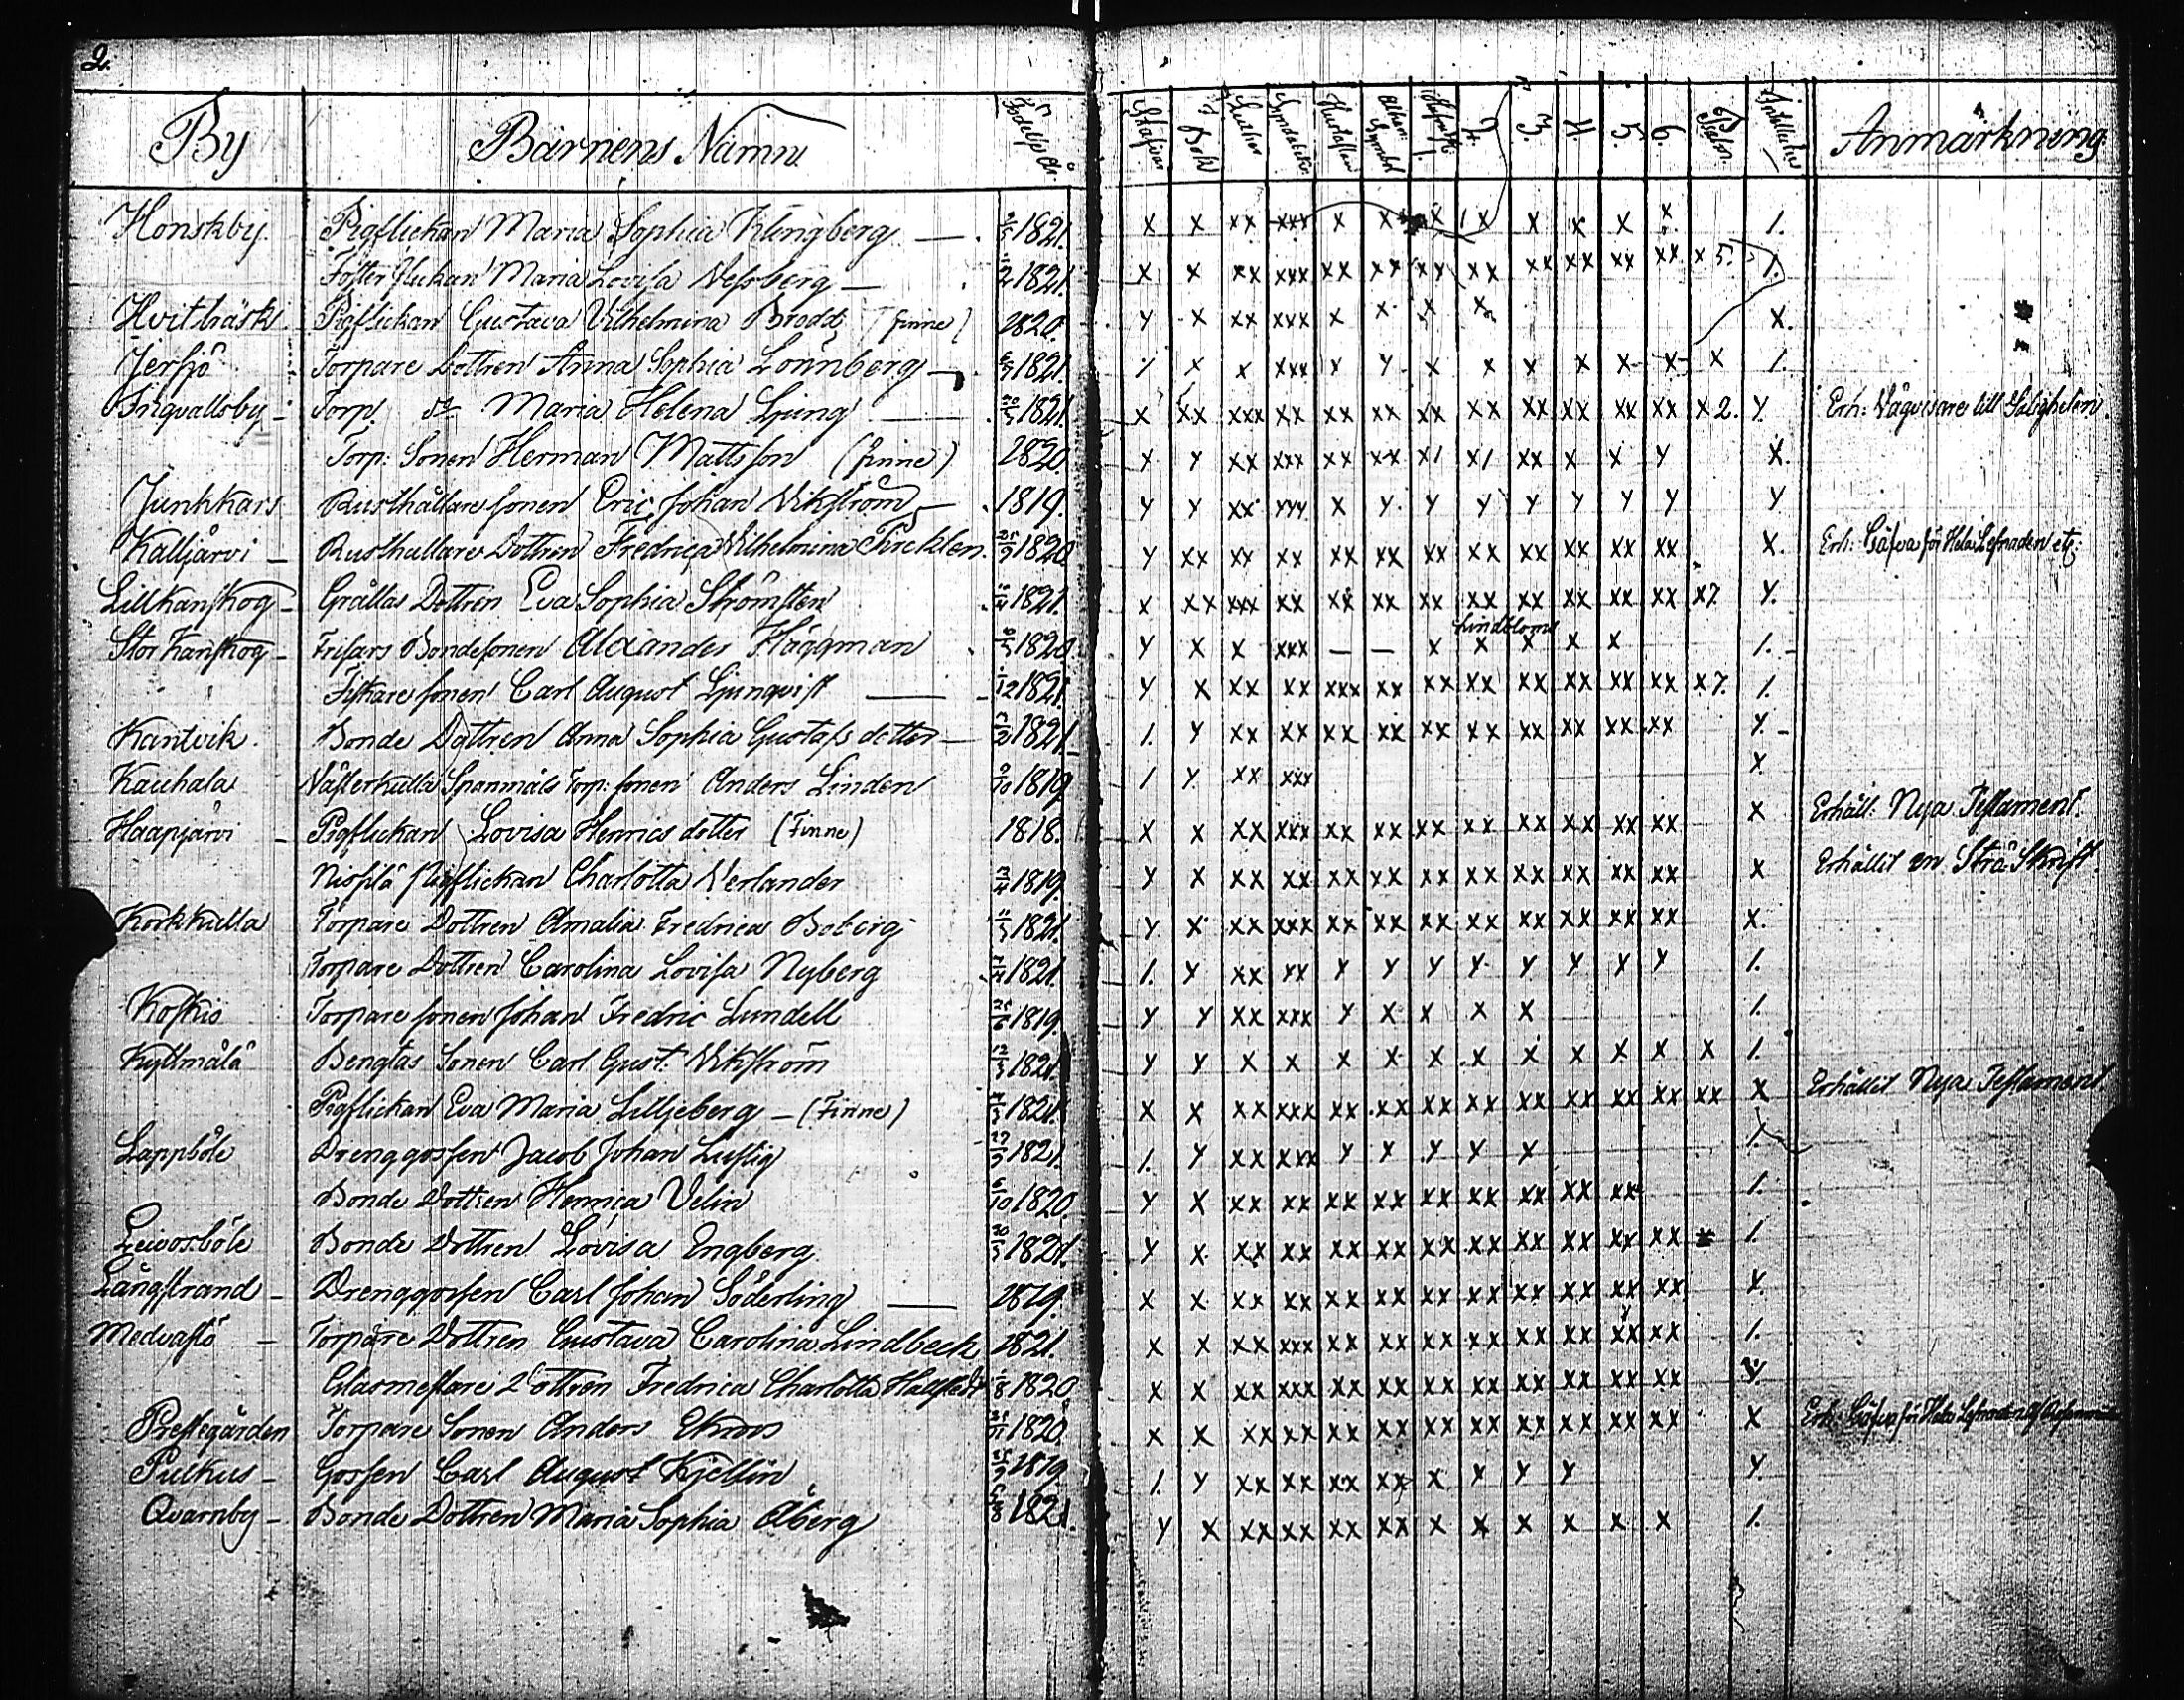 2.
By Barnens Namn Födelse År. Stafvar I Bok Luther Syndabek. Hustaflan Athan: Symbol Hufvst: 1. 2. 3. 4. 5. 6. Psalm. Intellectus Anmärkning
Honskby. Pigflickan Maria Sophia Klingberg — 1821. x x xx xxx x x x x x x x x 1.
Foster flickan Maria Lovisa Nessberg — 1821. x x xx xxx xx xx xx xx xx xx xx xx x 5. 1.
Hvitträsk Pigflickan Gustava Vilhelmina Brodd (Finne) 1820. y x xx xxx x x x x x.
Jerfsö Torpare Dottren Anna Sophia Lönnberg — 1821. 1 x x xxx x y x x x x x x x 1.
Ingvallsby — Torp. Dr Maria Helena Ljung — 1821. x xx xxx xx xx xx xx xx xx xx xx xx x 2. y. Erh: Vägvisare till Saligheten.
Torp: Sonen Herman Mattsson (Finne) 1820 x y xx xxx xx xx x1 x1 xx x x y x.
Junkkars Rusthållare sonen Eric Johan Wikström — 1819. y y xx yyy x y y y y y y y y
Kalljärvi — Rusthållare Dottren Fredrica Wilhelmina Fircklen. 25/9 1820 y xx xx xx xx xx xx xx xx xx xx xx x. Erh: Gåfva för Hela Lefnaden etc:
Lillkanskog — Grållas Dottren Eva Sophia Strömsten 1821. x xx xxx xx xx xx xx xx xx xx xx xx x 7. y.
Lindbloms
Stor Kanskog — Frisars Bondesonen Alexander Häggman 1820 y x x xxx — — x x x x x 1.
Fiskare sonen Carl August Ljunqvist — 1/12 1821. y x xx xx xxx xx xx xx xx xx xx xx x 7. 1.
Kantvik. Bonde Dottren Anna Sophia Gustafs dotter — 1821 1. y xx xx xx xx xx xx xx xx xx xx y.
Kauhala Västerkulla Spanmåls Torp: sonen Anders Linden 9/10 1819 1 y xx xxx x
Haapjärvi — Pigflickan Lovisa Henrics dotter (Finne) 1818. x x xx xxx xx xx xx xx xx xx xx xx x Erhåll: Nya Testament.
Pigflickan Charlotta Verlander 1819. y x xx xx xx xx xx xx xx xx xx xx x Erhållit en Strö Skrift.
Korkkulla Torpare Dottren Amalia Fredrica Boberg 1821. y x xx xxx xx xx xx xx xx xx xx xx x.
Torpare Dottren Carolina Lovisa Nyberg 1821. 1. y xx xx y y y y y y y y 1.
Koskis Torpare sonen Johan Fredric Lundell 25/6 1819. y y xx xxx y x x x x 1.
Kyttmälä Bengtas Sonen Carl Gust: Wikström 1821. y y x x x x x x x x x x x 1.
Pigflickan Eva Maria Lilljeberg — (Finne) 1821. x x xx xxx xx xx xx xx xx xx xx xx xx x Erhållit Nya Testament
Lappböle Drenggossen Jacob Johan Lustig 1821. 1. y xx xxx y x y x x 1.
Bonde Dottren Henrica Velin 6/10 1820. y x xx xx xx xx xx xx xx xx xx 1.
Leivosböle Bonde Dottren Lovisa Engberg 1821. y x xx xx xx xx xx xx xx xx xx xx 1.
Långstrand — Drenggossen Carl Johan Söderling — 1819. x x xx xx xx xx xx xx xx xx xx xx y.
Medvastö — Torpare Dottren Gustava Carolina Lindbeck 1821. x x xx xxx xx xx xx xx xx xx xx xx 1.
Glasmestare Dottren Fredrica Charlotta Hallstedt 1820 x x xx xxx xx xx xx xx xx xx xx xx y.
Prestegården Torpare Sonen Anders Ekroos 1820. x x xx xx xx xx xx xx xx xx xx xx x Erh: Gåfva för Hela Lefnaden
Pulkus — Gossen Carl August Kjellin 1819 1. y xx xx xx xx x y y y y
Qvarnby — Bonde Dottren Maria Sophia Åberg 1821. y x xx xx xx xx x x x x x x 1.